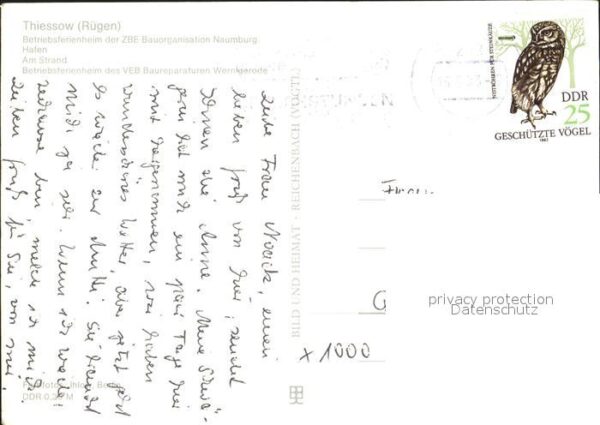 Thiessow (Rügen)
Betriebsferienheim der ZBE Bauorganisation Naumburg
Hafen
Am Strand
Betriebsferienheim des VEB Baureparaturen Wernigerode
NISTRÖHREN FÜR STEINKÄUZE
DDR
25
GESCHÜTZTE VÖGEL
1982
Liebe Frau Noack, einen
lieben Gruß von hier, sendet
Ihnen die Anne. Meine Schwä-
gerin hat mich ein paar Tage hier
mit hergenommen, wir haben
wunderschönes Wetter, aber jetzt geht
es wieder zur Mutti. Sie kommt
mich zu sich. Wenn ich wieder
zuhause bin, melde ich mich.
Lieben Gruß für Sie, von
mir.
BILD UND HEIMAT · REICHENBACH (VOGTL)
DDR 0,20 M
x 1000
privacy protection
Datenschutz